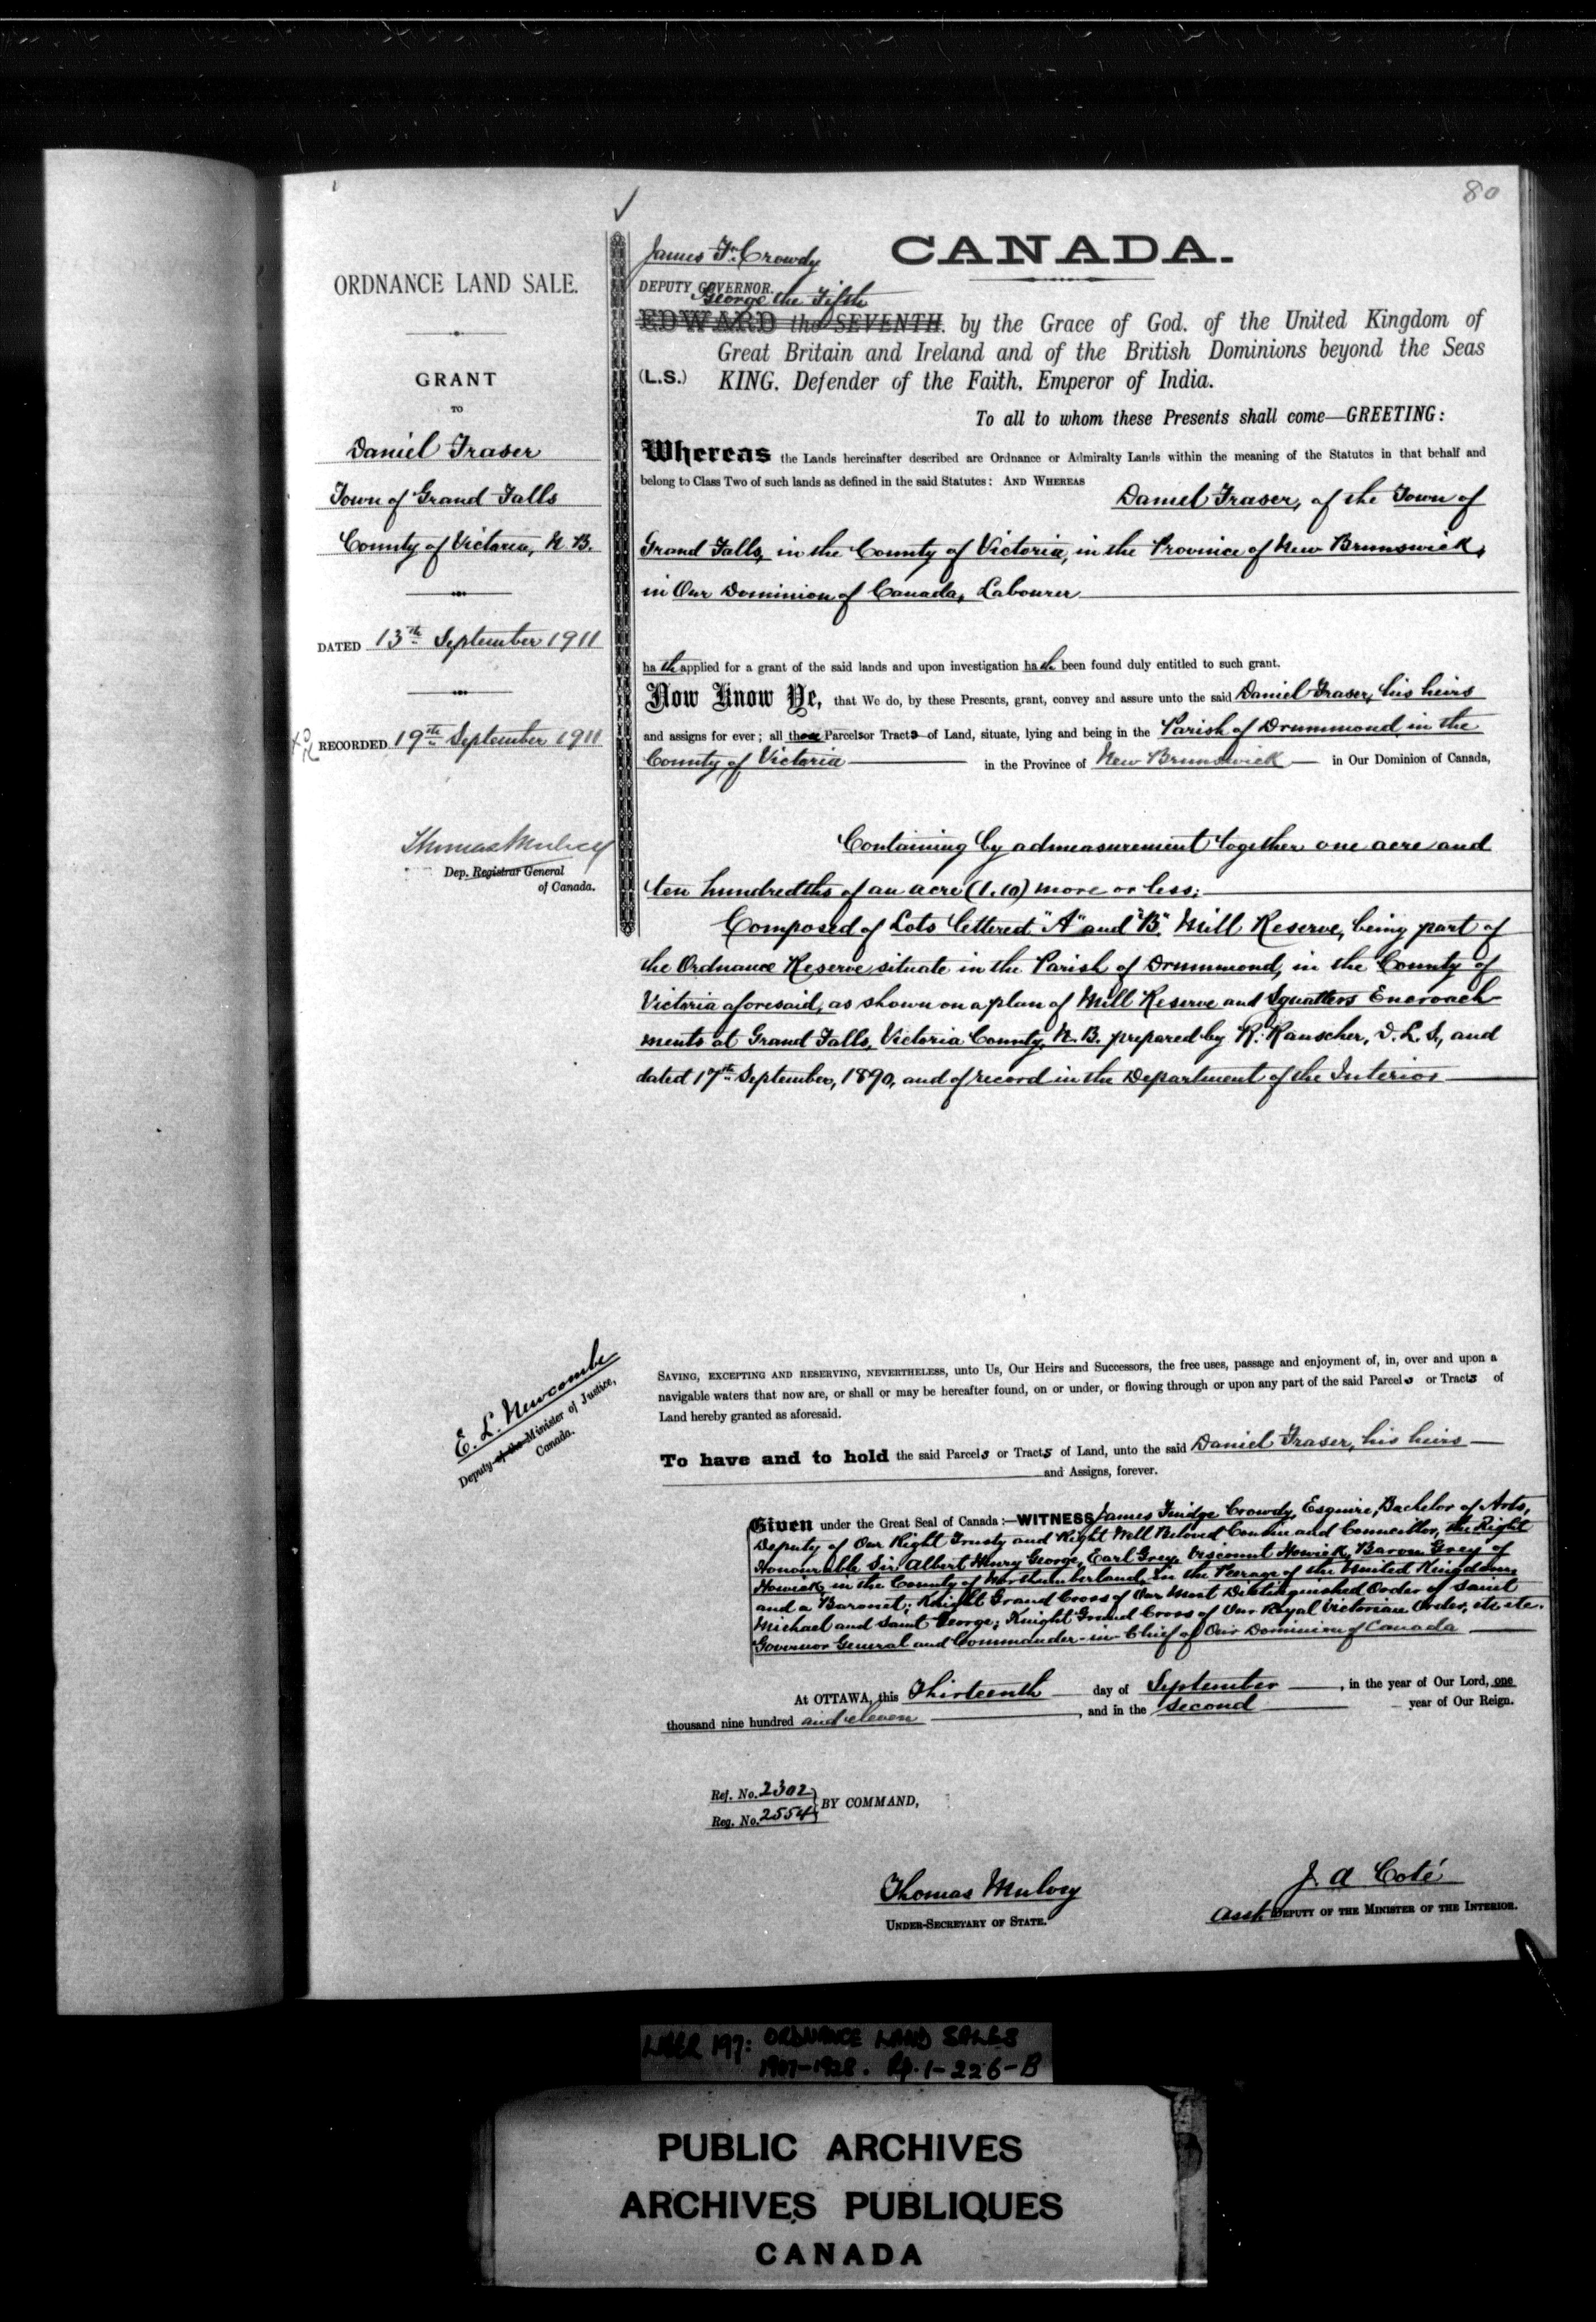 80
ORDNANCE LAND SALE.
GRANT
TO
Daniel Fraser
Town of Grand Falls
County of Victoria, N. B.
DATED 13th September 1911
RECORDED 19th September 1911
Thomas Mulvey
Dep. Registrar General
of Canada.
James F. Crowdy
CANADA.
DEPUTY GOVERNOR.
George the Fifth
EDWARD the SEVENTH, by the Grace of God, of the United Kingdom of
Great Britain and Ireland and of the British Dominions beyond the Seas
(L.S.) KING, Defender of the Faith, Emperor of India.
To all to whom these Presents shall come—GREETING:
Whereas the Lands hereinafter described are Ordnance or Admiralty Lands within the meaning of the Statutes in that behalf and
belong to Class Two of such lands as defined in the said Statutes: AND WHEREAS
Daniel Fraser, of the Town of
Grand Falls, in the County of Victoria, in the Province of New Brunswick,
in Our Dominion of Canada, Labourer
hath applied for a grant of the said lands and upon investigation hath been found duly entitled to such grant.
Now Know Ye, that We do, by these Presents, grant, convey and assure unto the said Daniel Fraser, his heirs
and assigns for ever; all those Parcels or Tracts of Land, situate, lying and being in the Parish of Drummond in the
County of Victoria in the Province of New Brunswick in Our Dominion of Canada,
Containing by admeasurement together one acre and
ten hundredths of an acre (1.10) more or less;
Composed of Lots lettered "A" and "B", Mill Reserve, being part of
the Ordnance Reserve situate in the Parish of Drummond, in the County of
Victoria aforesaid, as shown on a plan of Mill Reserve and Squatters Encroach-
ments at Grand Falls, Victoria County, N. B. prepared by R. Rauscher, D. L. S., and
dated 17th September, 1890, and of record in the Department of the Interior
E. L. Newcombe
Deputy of the Minister of Justice,
Canada.
SAVING, EXCEPTING AND RESERVING, NEVERTHELESS, unto Us, Our Heirs and Successors, the free uses, passage and enjoyment of, in, over and upon a
navigable waters that now are, or shall or may be hereafter found, on or under, or flowing through or upon any part of the said Parcels or Tracts of
Land hereby granted as aforesaid.
To have and to hold the said Parcels or Tracts of Land, unto the said Daniel Fraser, his heirs
and Assigns, forever.
Given under the Great Seal of Canada:—WITNESS James Fuidge Crowdy, Esquire, Bachelor of Arts,
Deputy of Our Right Trusty and Right Well Beloved Cousin and Councillor, the Right
Honourable Sir Albert Henry George, Earl Grey, Viscount Howick, Baron Grey of
Howick, in the County of Northumberland, in the Peerage of the United Kingdom
and a Baronet; Knight Grand Cross of Our Most Distinguished Order of Saint
Michael and Saint George; Knight Grand Cross of Our Royal Victorian Order, etc. etc.
Governor General and Commander-in-Chief of Our Dominion of Canada
At OTTAWA, this Thirteenth day of September, in the year of Our Lord, one
thousand nine hundred and eleven, and in the second year of Our Reign.
Ref. No. 2302
Reg. No. 2554
BY COMMAND,
Thomas Mulvey
UNDER-SECRETARY OF STATE.
J. A Coté
Asst. DEPUTY OF THE MINISTER OF THE INTERIOR.
LIBER 197: ORDNANCE LAND SALES
1907-1928. Pp. 1-226-B
PUBLIC ARCHIVES
ARCHIVES PUBLIQUES
CANADA